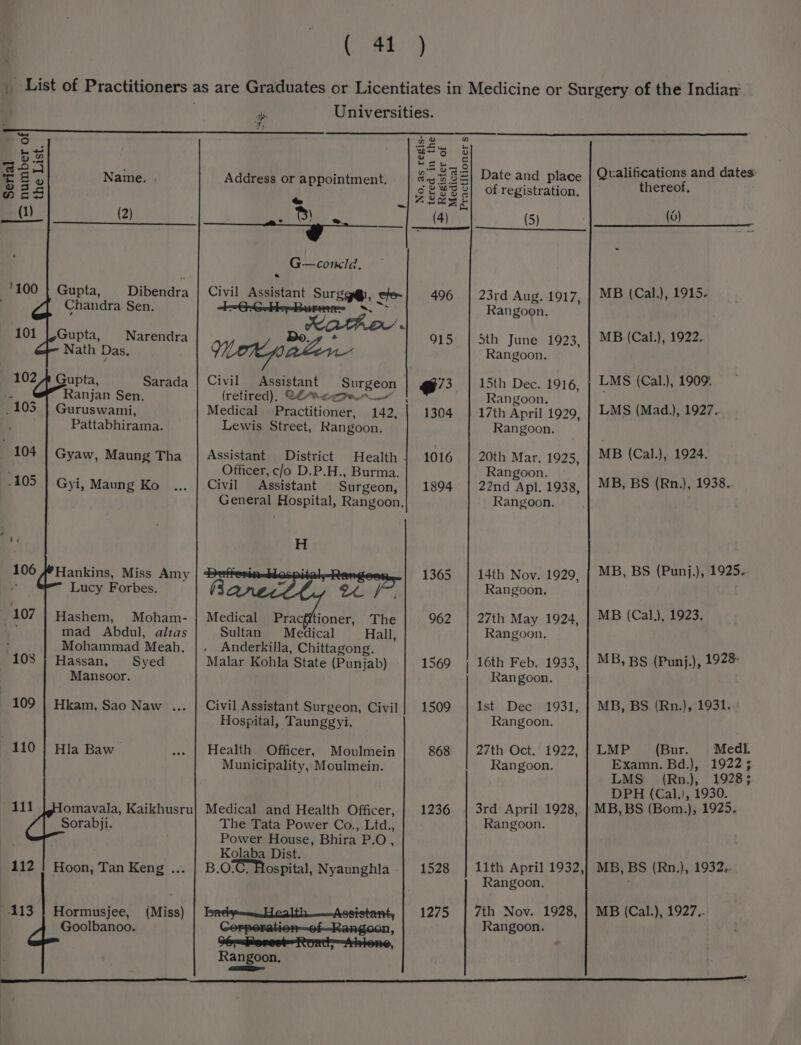 ( 41 )
List of Practitioners as are Graduates or Licentiates in Medicine or Surgery of the Indian
Universities.
Serial number of the List.
Name.
Address or appointment.
No. as registered in the Register of Medical Practitioners
Date and place of registration.
Qualifications and dates thereof.
(1) (2) (3) (4) (5) (6)
G—concld.
100 Gupta, Dibendra Civil Assistant Surgeon, 496 23rd Aug. 1917, MB (Cal.), 1915.
Chandra Sen. I.-G.C.H., Burma. Rangoon.
Katha.
101 Gupta, Narendra Do. 915 5th June 1923, MB (Cal.), 1922.
Nath Das. Rangoon.
102 Gupta, Sarada Civil Assistant Surgeon 73 15th Dec. 1916, LMS (Cal.), 1909.
Ranjan Sen. (retired). Rangoon.
103 Guruswami, Medical Practitioner, 142, 1304 17th April 1929, LMS (Mad.), 1927.
Pattabhirama. Lewis Street, Rangoon. Rangoon.
104 Gyaw, Maung Tha Assistant District Health 1016 20th Mar. 1925, MB (Cal.), 1924.
Officer, c/o D.P.H., Burma. Rangoon.
105 Gyi, Maung Ko ... Civil Assistant Surgeon, 1894 22nd Apl. 1938, MB, BS (Rn.), 1938.
General Hospital, Rangoon. Rangoon.
H
106 Hankins, Miss Amy Dufferin Hospital, Rangoon. 1365 14th Nov. 1929, MB, BS (Punj.), 1925.
Lucy Forbes. Bareilly U P. Rangoon.
107 Hashem, Moham- Medical Practitioner, The 962 27th May 1924, MB (Cal.), 1923.
mad Abdul, alias Sultan Medical Hall, Rangoon.
Mohammad Meah. Anderkilla, Chittagong.
108 Hassan, Syed Malar Kohla State (Punjab) 1569 16th Feb. 1933, MB, BS (Punj.), 1928.
Mansoor. Rangoon.
109 Hkam, Sao Naw ... Civil Assistant Surgeon, Civil 1509 1st Dec 1931, MB, BS (Rn.), 1931.
Hospital, Taunggyi. Rangoon.
110 Hla Baw ... Health Officer, Moulmein 868 27th Oct. 1922, LMP (Bur. Medl.
Municipality, Moulmein. Rangoon. Examn. Bd.), 1922;
LMS (Rn.), 1928;
DPH (Cal.), 1930.
111 Homavala, Kaikhusru Medical and Health Officer, 1236 3rd April 1928, MB, BS (Bom.), 1925.
Sorabji. The Tata Power Co., Ltd., Rangoon.
Power House, Bhira P.O,
Kolaba Dist.
112 Hoon, Tan Keng ... B.O.C. Hospital, Nyaunghla 1528 11th April 1932, MB, BS (Rn.), 1932.
Rangoon.
113 Hormusjee, (Miss) Lady Health Assistant, 1275 7th Nov. 1928, MB (Cal.), 1927.
Goolbanoo. Corporation of Rangoon, Rangoon.
96, Forest Road, Ahlone,
Rangoon.